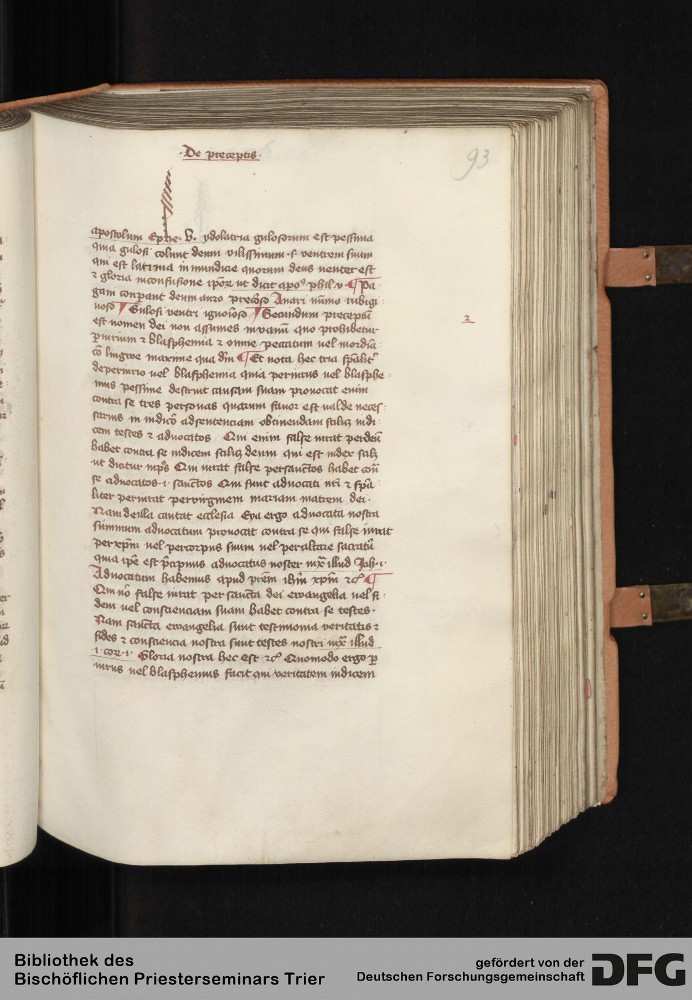 ·De preceptis·
93
apostolum Ephe· v· ydolatria gulosorum est pessima
quia gulosi colunt deum vilissimum ·s· ventrem suum
qui est latrina inmundicie quorum deus venter est
⁊ gloria inconfusione ipoꝝ ut dicit apoꝰ phil· ¶ Pa
gani conparant deum auro precioso Auari nummo rubigi
noso ¶ Gulosi ventri ¶ Secundum preceptū
est nomen dei non assumes in vanū quo prohibetur
periurium ⁊ blasphemia ⁊ omne peccatum vel mordia
lingwe maxime qua dm̄ ¶ Et nota hec tria spālit̉
deperiurio vel blasphemia quia periurus vel blasphe
mus pessime destruit causam suam prouocat enim
contra se tres personas quarum fauor est valde neces
sarius in iudicō adsentenciam obtinendam scilicꝫ iudi
cem testes ⁊ aduocatos / Qui enim false iurat perdeū
habet contra se iudicem scilicꝫ deum qui est iudex
ut dicitur Qui iurat false persanctos habet con̄
se aduocatos ·i· sanctos Qui sunt aduocati nr̄i ⁊ spā
liter periurat pervirginem mariam matrem dei·
Nam deilla cantat ecclesia Eya ergo aduocata nostra
summum aduocatum prouocat contra se qui false iurat
perxpm̄ vel percorpus suum vel peraltare sacratū
quia ipe est pncipuus aduocatus noster iux̄ illud Joh· i·
Aduocatum habemus apud prēm ihm̄ xpm̄ ⁊cͣ ¶
Qui ꝟo false iurat per sancta dei ewangelia vel fi
dem vel conscienciam suam habet contra se testes·
Nam sancta ewangelia sunt testimonia veritatis ⁊
fides ⁊ consciencia nostra sunt testes nostri iux̄ illud
·i· cor· i· Gloria nostra hec est ⁊cͣ Quomodo ergo ꝑ
iurus vel blasphemus facit qui veritatem iudicem
2
Bibliothek des
Bischöflichen Priesterseminars Trier
gefördert von der
Deutschen Forschungsgemeinschaft
DFG